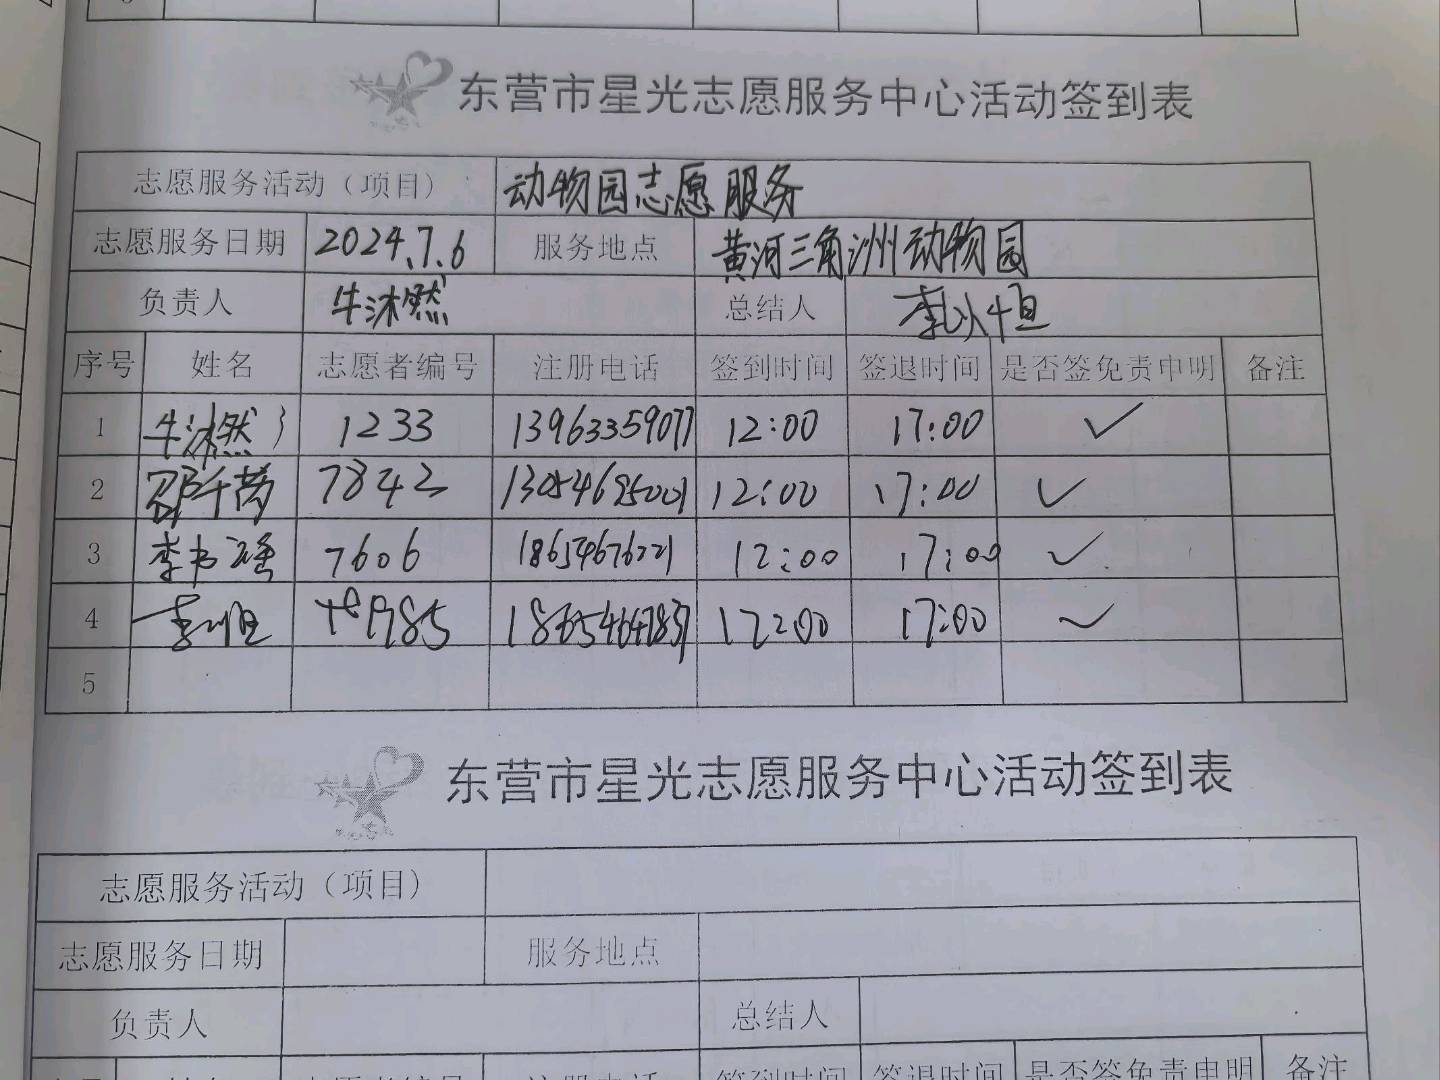 东营市星光志愿服务中心活动签到表
志愿服务活动（项目） 动物园志愿服务
志愿服务日期 2024.7.6 服务地点 黄河三角洲动物园
负责人 牛沐然 总结人 李以恒
序号 姓名 志愿者编号 注册电话 签到时间 签退时间 是否签免责申明 备注
1 牛沐然 1233 13963359077 12:00 17:00 ✓
2 邵千 7842 12:00 17:00 ✓
3 李书瑶 7606 18654676221 12:00 17:00 ✓
4 李以恒 18654647837 12:00 17:00 ✓
5
东营市星光志愿服务中心活动签到表
志愿服务活动（项目）
志愿服务日期 服务地点
负责人 总结人
签到时间 签退时间 是否签免责申明 备注